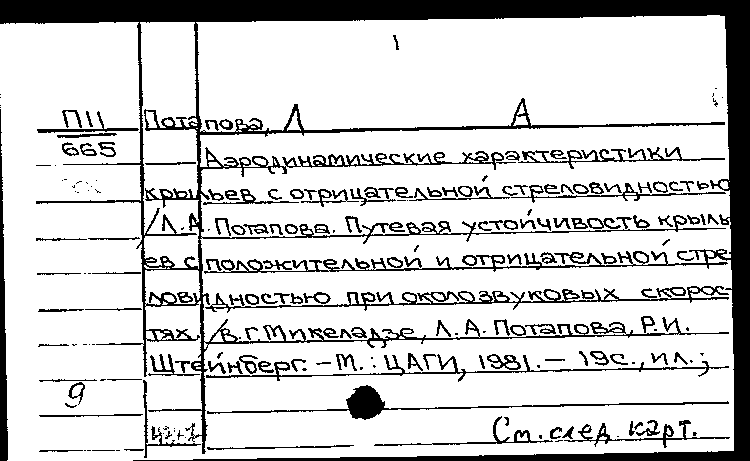 1
П11 Потапова, Л А
665 Аэродинамические характеристики
крыльев с отрицательной стреловидностью
/Л.А. Потапова. Путевая устойчивость крыль
ев с положительной и отрицательной стре-
ловидностью при околозвуковых скорос-
тях. /В.Г. Микеладзе, Л.А. Потапова, Р.И.
Штейнберг. - М.: ЦАГИ, 1981. - 19с., ил.;
9
См. след карт.